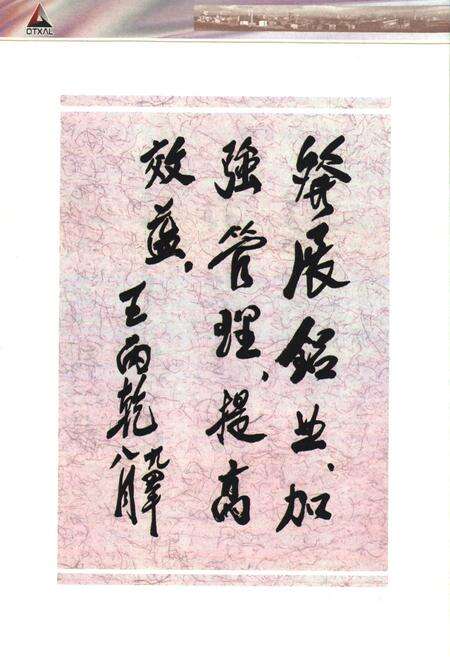 DTXAL
發展鋁业、加
強管理、提高
效益、
王丙乾
九四年
八月